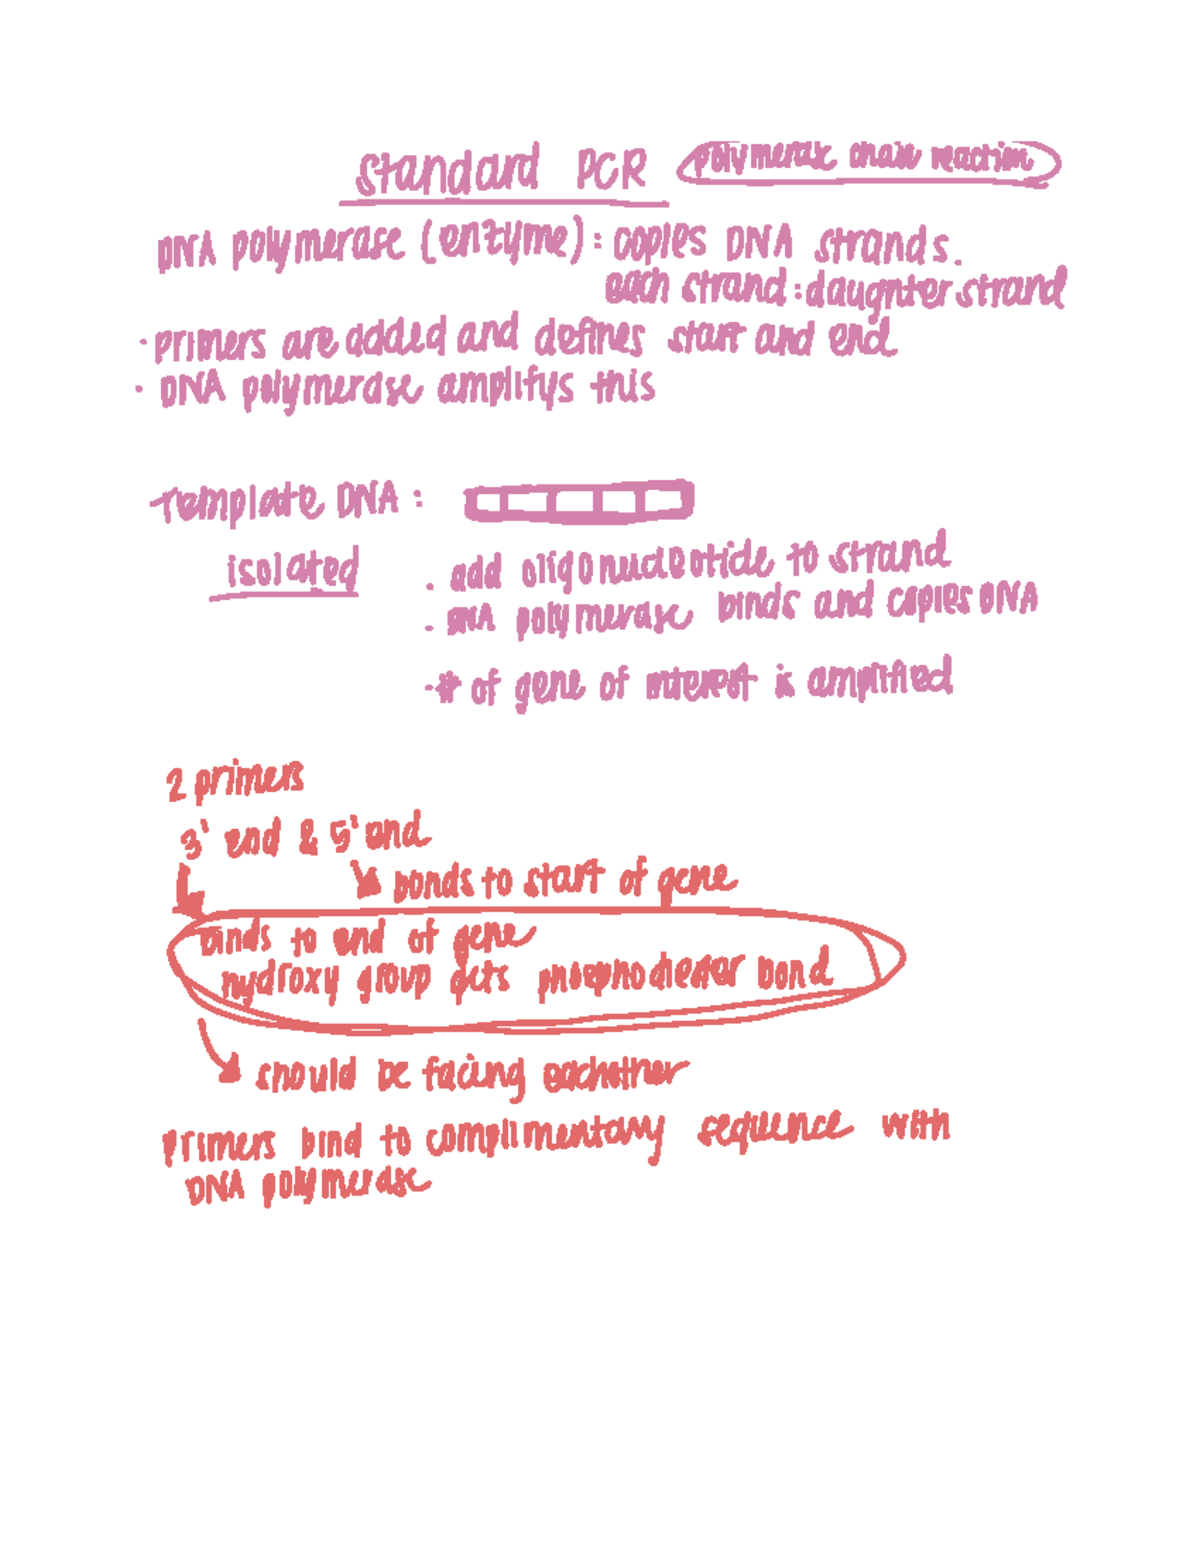 Standard PCR polymerase chain reaction
DNA polymerase (enzyme): copies DNA strands.
each strand: daughter strand
· primers are added and defines start and end
· DNA polymerase amplifys this
Template DNA:
isolated
· add oligonucleotide to strand
· DNA polymerase binds and copies DNA
· # of gene of interest is amplified
2 primers
3' end & 5' end
bonds to start of gene
binds to end of gene
hydroxy group gets phosphodiester bond
should be facing eachother
primers bind to complimentary sequence with
DNA polymerase